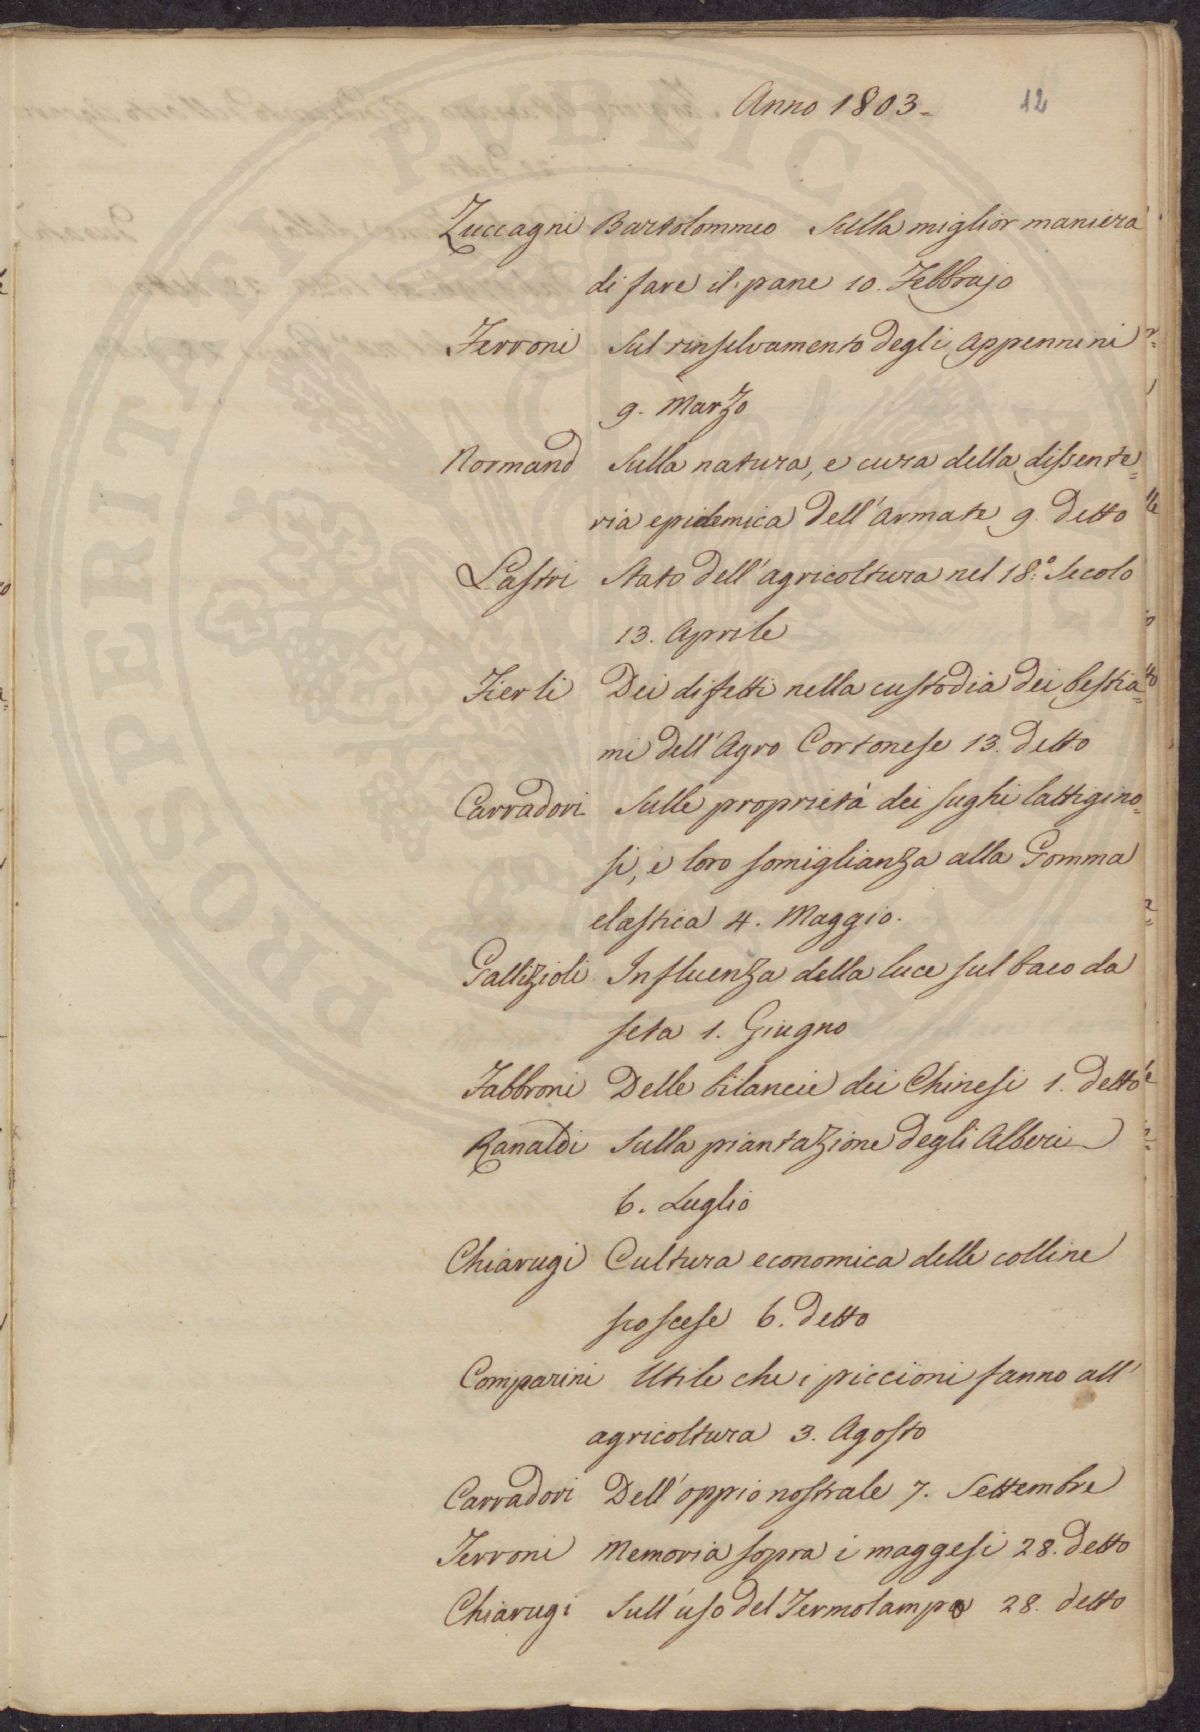 Anno 1803. 12
Zuccagni Bartolommeo Sulla miglior maniera
di fare il pane 10. Febbrajo
Ferroni Sul rinselvamento degli Appennini
9. Marzo
Normand Sulla natura, e cura della dissente=
ria epidemica dell'Armate 9. detto
Lastri Stato dell'agricoltura nel 18.° Secolo
13. Aprile
Fierli Dei difetti nella custodia dei bestia=
mi dell'Agro Cortonese 13. detto
Carradori Sulle proprietà dei sughi lattigino=
si, e loro somiglianza alla Gomma
elastica 4. Maggio.
Gallizioli Influenza della luce sul baco da
seta 1. Giugno
Fabbroni Delle bilancie dei Chinesi 1. detto
Ranaldi Sulla piantazione degli Alberi
6. Luglio
Chiarugi Cultura economica delle colline
scoscese 6. detto
Comparini Utile che i piccioni fanno all'
agricoltura 3. Agosto
Carradori Dell'oppio nostrale 7. Settembre
Ferroni Memoria sopra i maggesi 28. detto
Chiarugi Sull'uso del Termolampo 28. detto
PROSPERITATI PUBLICAE